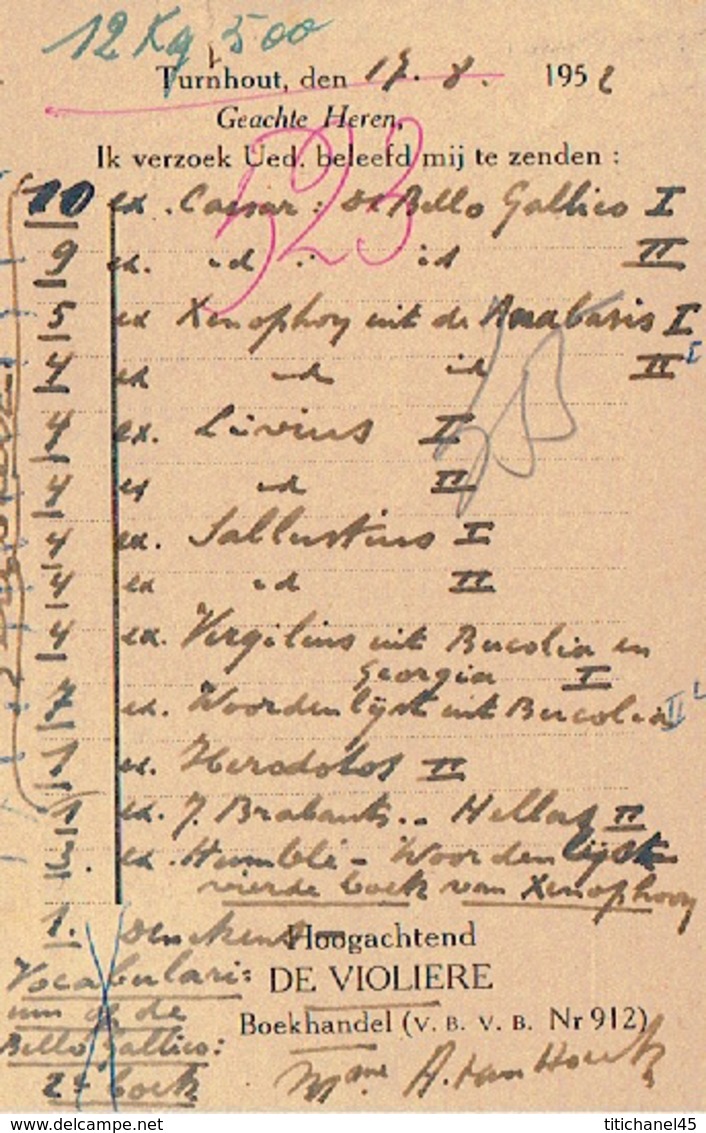 12 Kg 500
Turnhout, den 17. 8. 1952
Geachte Heren,
523
Ik verzoek Ued. beleefd mij te zenden :
10 ex. Caesar: de Bello Gallico I
9 ex. id id II
5 ex Xenophon uit de Anabasis I
4 ex id id II
4 ex. Livius II
4 ex id II
4 ex. Sallustius I
4 ex id II
4 ex. Vergilius uit Bucolia en
Georgia I
7 ex. Woordenlijst uit Bucolia II
1 ex. Herodotos II
1 ex. J. Brabants .. Hellas II
3. ex. Humblé - Woordenlijst
vierde boek van Xenophoon
1.
Hoogachtend
Vocabulari:
DE VIOLIERE
um op de
Boekhandel (V. B. V. B. Nr 912)
Bello Gallico:
2e boek
Mme A. van Houck
titichanel45